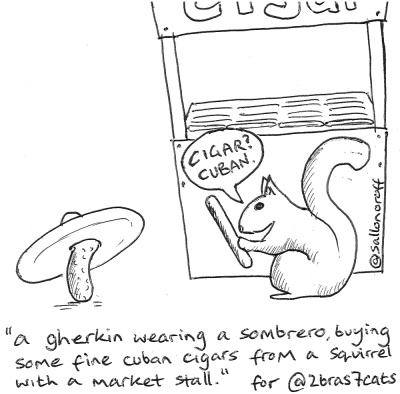 cigar
CIGAR?
CUBAN.
@sallonoroff
"a gherkin wearing a sombrero, buying
some fine cuban cigars from a squirrel
with a market stall." for @2bras7cats